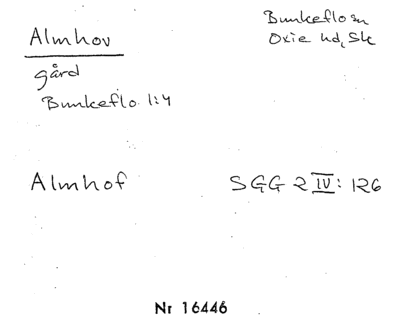 Almhov
Bunkeflo sn
Oxie hd, Sk
gård
Bunkeflo 1:4
Almhof
SGG 2 IV: 126
Nr 16446